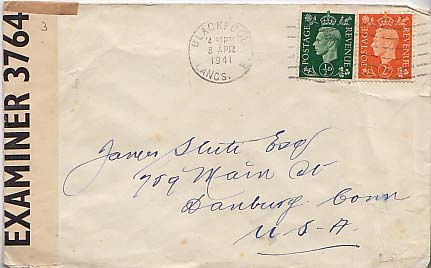 3
EXAMINER 3764
BLACKPOOL
8 APR
1941
LANCS.
POSTAGE REVENUE
½D
POSTAGE REVENUE
2D
James Slute Esq
709 Main St
Danbury Conn
U.S.A.